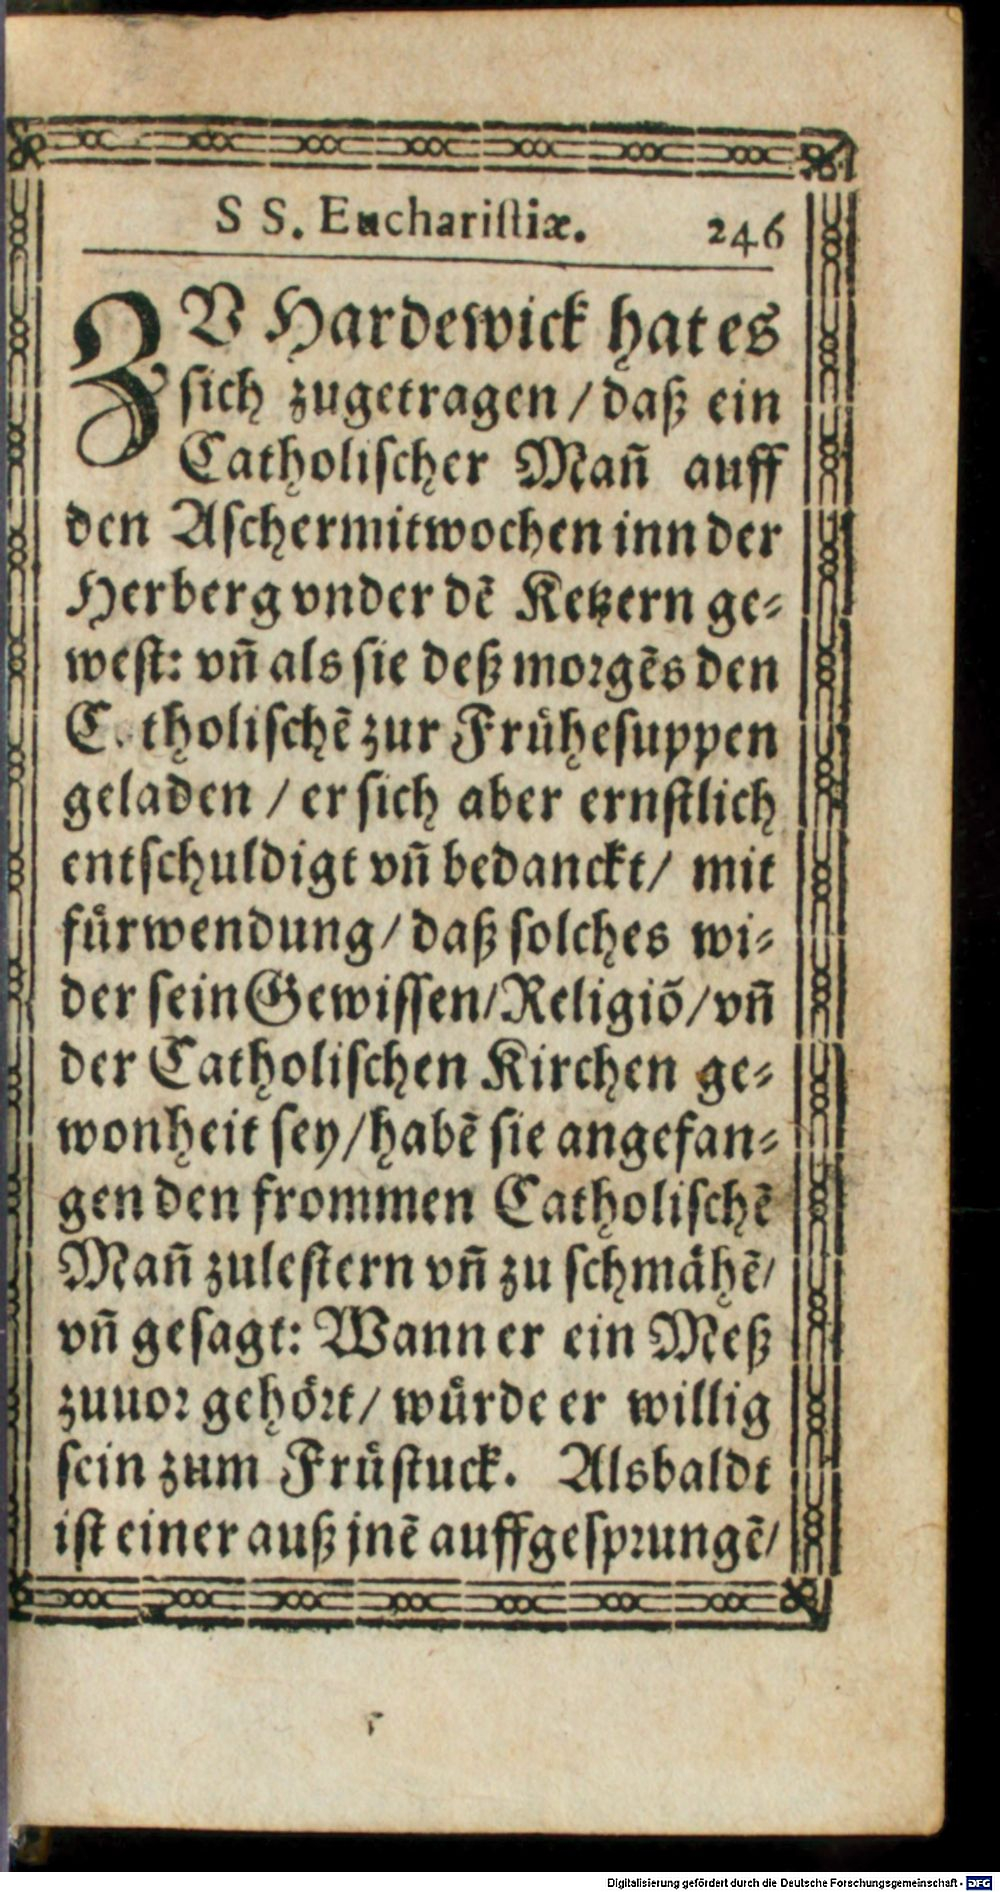 S S. Euchariſtiæ. 246
ZV Hardewick hat es
ſich zugetragen / daß ein
Catholiſcher Man̄ auff
den Aſchermitwochen inn der
Herberg vnder dē Ketzern ge⸗
weſt: vn̄ als ſie deß morgēs den
C. tholiſchē zur Fruͤheſuppen
geladen / er ſich aber ernſtlich
entſchuldigt vn̄ bedanckt / mit
fuͤrwendung / daß ſolches wi⸗
der ſein Gewiſſen / Religiō / vn̄
der Catholiſchen Kirchen ge⸗
wonheit ſey / habē ſie angefan⸗
gen den frommen Catholiſchē
Man̄ zuleſtern vn̄ zu ſchmaͤhē /
vn̄ geſagt: Wann er ein Meß
zuuor gehoͤrt / wuͤrde er willig
ſein zum Fruͤſtuck. Alsbaldt
iſt einer auß jnē auffgeſprungē /
Digitalisierung gefördert durch die Deutsche Forschungsgemeinschaft - DFG